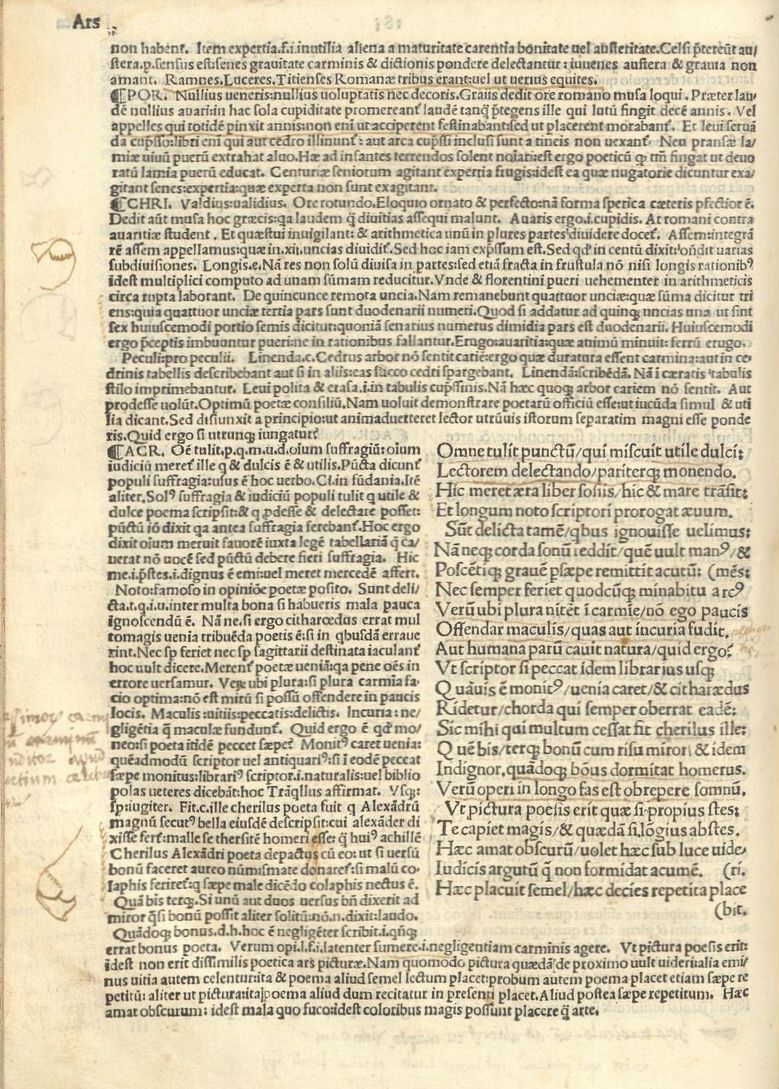 Ars
non habent. Item expertia.s.i.inutilia aliena a maturitate carentia bonitate uel austeritate. Celsi p̄tereūt au/
stera.p.sensus est:senes grauitate carminis & dictionis pondere delectantur: iuuenes austera & grauia non
amant. Ramnes. Luceres. Titienses Romanæ tribus erant: uel ut uerius equites.
¶POR. Nullius ueneris: nullius uoluptatis nec decoris. Graiis dedit ore romano musa loqui. Præter lau/
dē nullius auari: in hac sola cupiditate promereant̄ laudē tanq̄ p̄tegens ille qui lutū fingit decē annis. Vel
appelles qui totidē pinxit annis: non eni ut acciperent festinabant: sed ut placerent morabant̄. Et leui seruā
da cupsso: libri eni qui aut cedro illinunt̄: aut arca cupssi inclusi sunt a tineis non uexant̄. Neu pransæ la/
miæ uiuū puerū extrahat aluo. Hæ ad infantes terrendos solent noiari: est ergo poeticū q̄ tm̄ fingat ut deuo
ratū lamia puerū educat. Centuriæ seniorum agitant expertia frugis: idest ea quæ nugatorie dicuntur exa/
gitant senes: expertia: quæ experta non sunt exagitant.
¶CHRI. Valdius: ualidius. Ore rotundo. Eloquio ornato & perfecto: nā forma sperica cæteris pfectior ē.
Dedit aūt musa hoc græcis: qa laudem q̄ diuitias assequi malunt. Auaris ergo.i.cupidis. At romani contra
auaritiæ student. Et quæstui inuigilant: & arithmetica unū in plures partes diuidere docet̄. Assem: integrā
rē assem appellamus: quæ in.xii.uncias diuidit̄. Sed hoc iam exp̄ssum est. Sed qd̄ in centū dixit: oñdit uarias
subdiuisiones. Longis.e. Nā res non solū diuisa in partes: sed etiā fracta in frustula nō nisi longis rationibꝰ
idest multiplici computo ad unam sūmam reducitur. Vnde & florentini pueri uehementer in arithmeticis
circa rupta laborant. De quincunce remota uncia. Nam remanebunt quattuor unciæ: quæ sūma dicitur tri
ens: quia quattuor unciæ tertia pars sunt duodenarii numeri. Quod si addatur ad quinqꝫ uncias una ut sint
sex huiuscemodi portio semis dicitur: quoniā senarius numerus dimidia pars est duodenarii. Huiuscemodi
ergo p̄ceptis imbuuntur pueri: ne in rationibus fallantur. Erugo: auaritia: quæ animū minuit: ferrū erugo.
Peculi: pro peculii. Linenda.c. Cedrus arbor nō sentit cariē: ergo quæ duratura essent carmina: aut in ce/
drinis tabellis describebant aut si in aliis: eas succo cedri spargebant. Linendā: scribēdā. Nā i cæratis tabulis
stilo imprimebantur. Leui polita & etasa.i.in tabulis cupssinis. Nā hæc quoqꝫ arbor cariem nō sentit. Aut
prodesse uolūt. Optimū poetæ consiliū. Nam uoluit demonstrare poetarū officiū esse: ut iucūda simul & uti
lia dicant. Sed disiunxit a principio: ut animaduerteret lector utrūuis istorum separatim magni esse ponde
ris. Quid ergo si utrunqꝫ iungatur?
¶ACR. Oē tulit.p.q.m.u.d.oium suffragiū: oium
iudiciū meret̄ ille q & dulcis ē & utilis. Pūcta dicunt̄
populi suffragia: usus ē hoc uerbo. Ci. in fūdania. Itē
aliter. Solꝰ suffragia & iudiciū populi tulit q utile &
dulce poema scripsit: & q p̄desse & delectare posset:
pūctū iō dixit qa antea suffragia ferebant̄. Hoc ergo
dixit oium meruit fauorē iuxta legē tabellariā q̄ ca/
uerat nō uocē sed pūctū debere fieri suffragia. Hic
me.i.p̄stes.i.dignus ē emi: uel meret mercedē affert.
Noto: famoso in opiniōe poetæ posito. Sunt deli/
cta.t.q.i.u.inter multa bona si habueris mala pauca
ignoscendū ē. Nā ne. si ergo citharœdus errat mul
tomagis uenia tribuēda poetis ē: si in qbusdā erraue
rint. Nec sp feriet nec sp sagittarii destinata iaculant̄
hoc uult dicere. Merent̄ poetæ ueniā: qa pene oēs in
errore uersamur. Veꝝ ubi plura: si plura carmīa fa/
cio optima: nō est mirū si possū offendere in paucis
locis. Maculis: uitiis: peccatis: delictis. Incuria: ne/
gligētia q̄ maculæ fundunt̄. Quid ergo ē qd̄ mo/
neo: si poeta itidē peccet sæpe? Monitꝰ caret uenia:
quēadmodū scriptor uel antiquariꝰ: si i eodē peccat
sæpe monitus: librariꝰ scriptor.i.naturalis: uel biblio
polas ueteres dicebāt: hoc Trāqllus affirmat. Vsqꝫ:
sp: iugiter. Fit.c. ille cherilus poeta fuit q Alexādrū
magnū secutꝰ bella eiusdē descripsit: cui alexāder di
xisse fert̄: malle se thersitē homeri esse: q̄ huiꝰ achillē
Cherilus Alexādri poeta depactus cū eo: ut si uersū
bonū faceret aureo numismate donaret̄: si malū co/
laphis feriret̄: q sæpe male dicēdo colaphis nectus ē.
Quā bis terqꝫ. Si unū aut duos uersus bñ dixerit ad
miror q̄si bonū possit aliter solitū: nō.n.dixit: laudo.
Quādoqꝫ bonus.d.h.hoc ē negligēter scribit.i.qn̄qꝫ
Omne tulit punctū/ qui miscuit utile dulci:
Lectorem delectando/ pariterqꝫ monendo.
Hic meret æra liber sosiis/ hic & mare trāsit:
Et longum noto scriptori prorogat æuum.
Sūt delicta tamē/ qbus ignouisse uelimus:
Nā neqꝫ corda sonū reddit/ quē uult manꝰ/ &
Poscētiqꝫ grauē psæpe remittit acutū: (mēs:
Nec semper feriet quodcūqꝫ minabitur arcꝰ
Verū ubi plura nitēt i carmīe/ nō ego paucis
Offendar maculis/ quas aut incuria fudit.
Aut humana parū cauit natura/ quid ergo?
Vt scriptor si peccat idem librarius usqꝫ
Quāuis ē monitꝰ/ uenia caret/ & citharædus
Ridetur/ chorda qui semper oberrat eadē:
Sic mihi qui multum cessat fit cherilus ille:
Quē bis/ terqꝫ bonū cum risu miror/ & idem
Indignor. quādoqꝫ bōus dormitat homerus.
Verū operi in longo fas est obrepere somnū.
Vt pictura poesis erit quæ si propius stes:
Te capiet magis/ & quædā si lōgius abstes.
Hæc amat obscurū/ uolet hæc sub luce uide/
Iudicis argutū q̄ non formidat acumē. (ri.
Hæc placuit semel/ hæc decies repetita place
(bit.
errat bonus poeta. Verum opi.l.f.i.latenter sumere.i.negligentiam carminis agere. Vt pictura poesis erit:
idest non erit dissimilis poetica ars picturæ. Nam quomodo pictura quædā de proximo uult uideri: alia emi/
nus uitia autem celentur: ita & poema aliud semel lectum placet: probum autem poema placet etiam sæpe re
petitū: aliter ut pictura: ita poema aliud dum recitatur in presenti placet. Aliud postea sæpe repetitum. Hæc
amat obscurum: idest mala quo fuco: idest coloribus magis possunt placere q̄ arte.